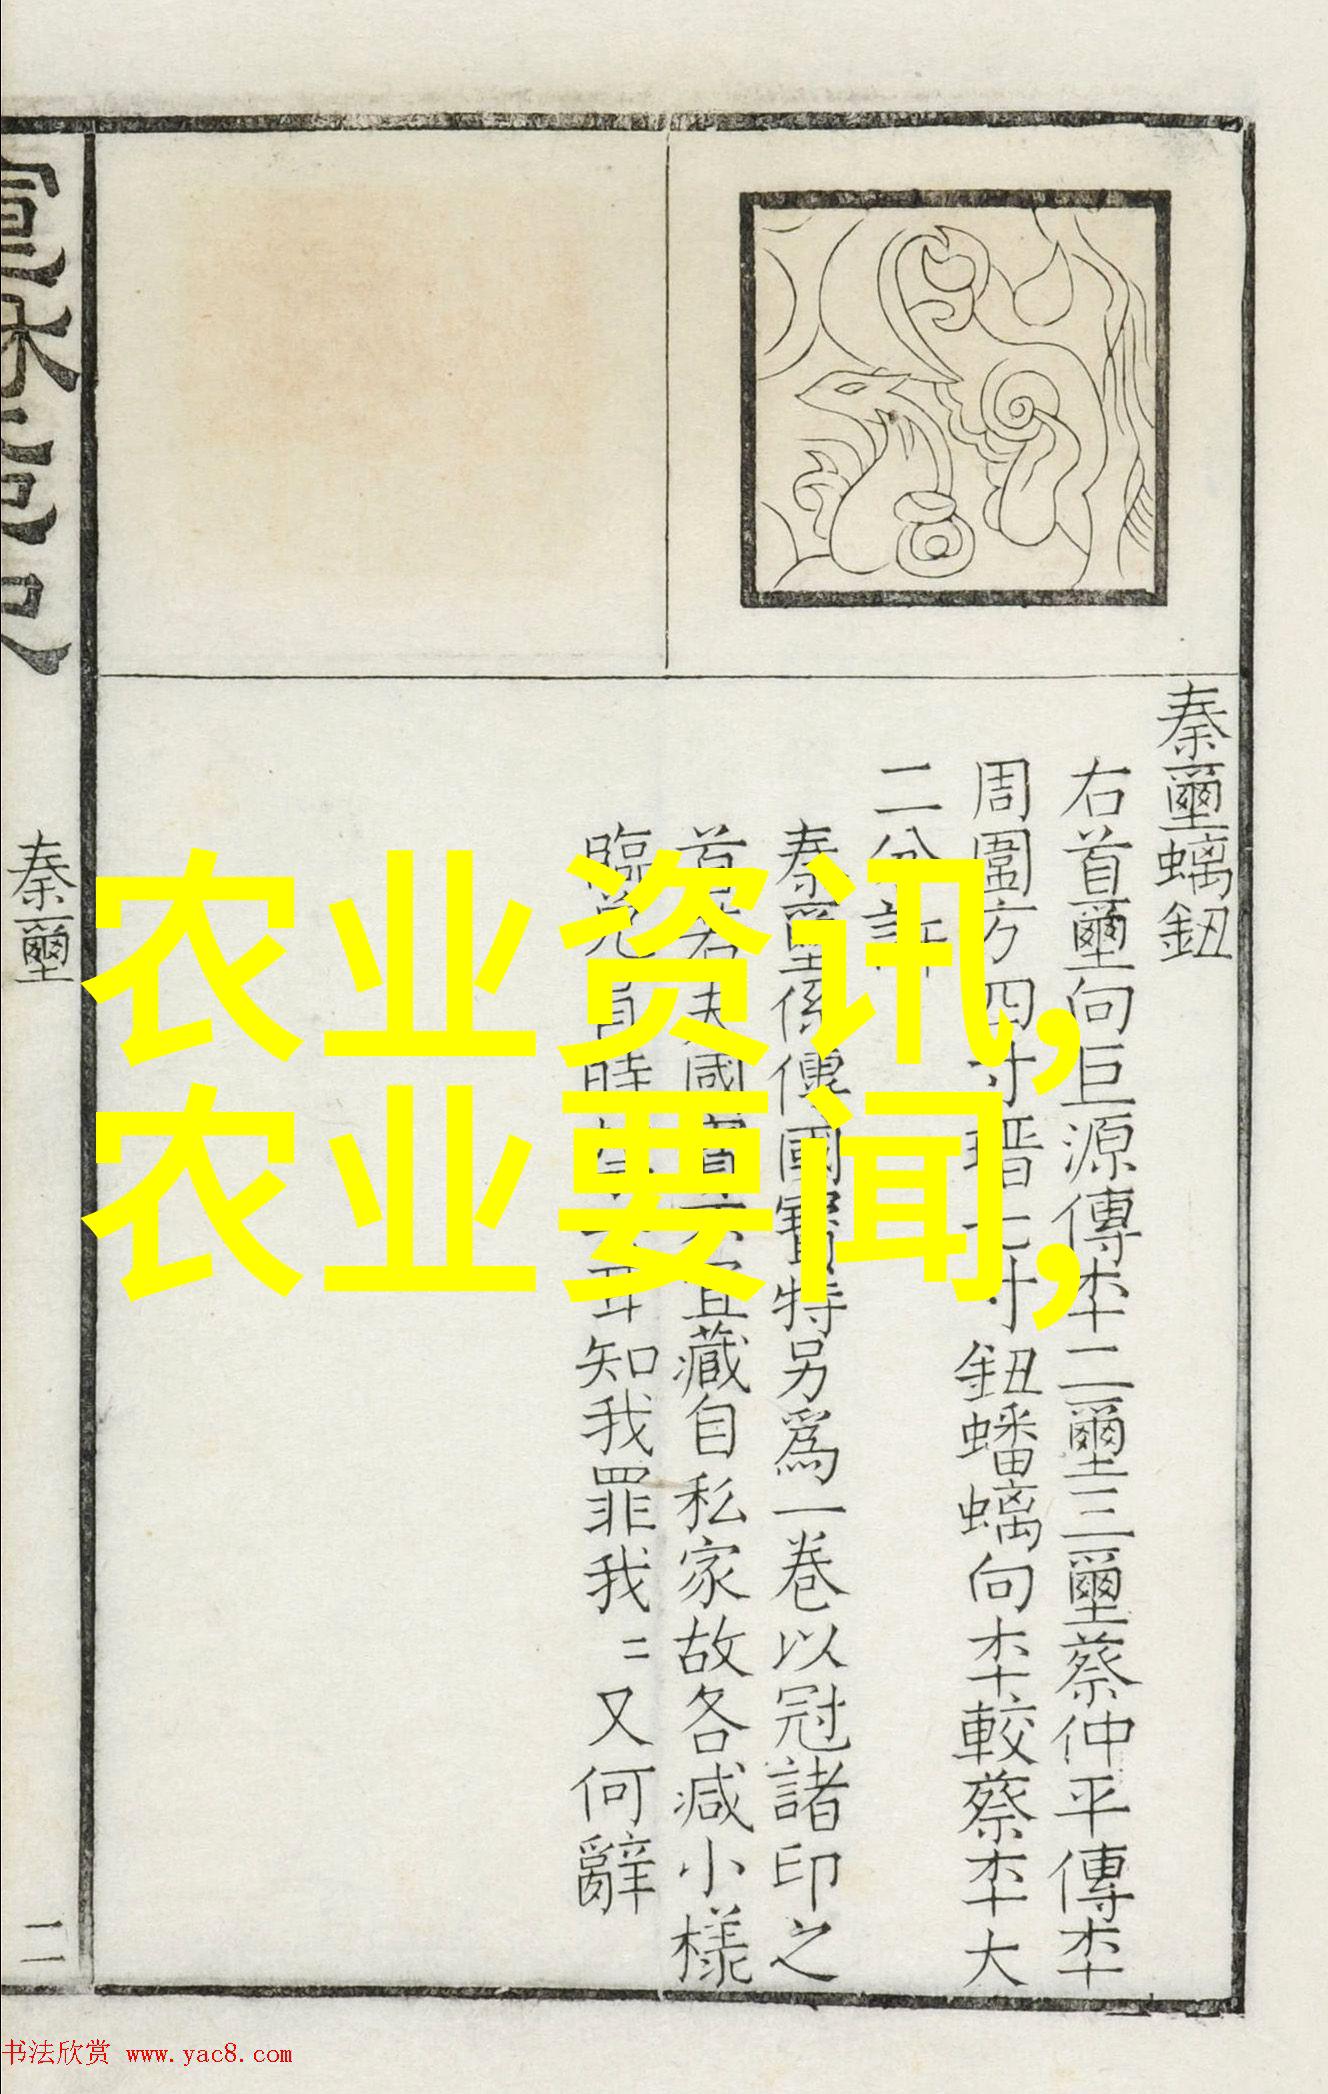 秦璽螭鈕
右首璽向巨源傳本二璽三璽蔡仲平傳本
周圍方四寸
七寸鈕蟠螭向本較蔡本大
二分許
秦璽係傳國寶特另爲一卷以冠諸印之
首
宜藏自私家故各减小樣
臨
知我罪我〻又何辭
秦璽
二
农业资讯,
农业要闻,
书法欣赏 www.yac8.com